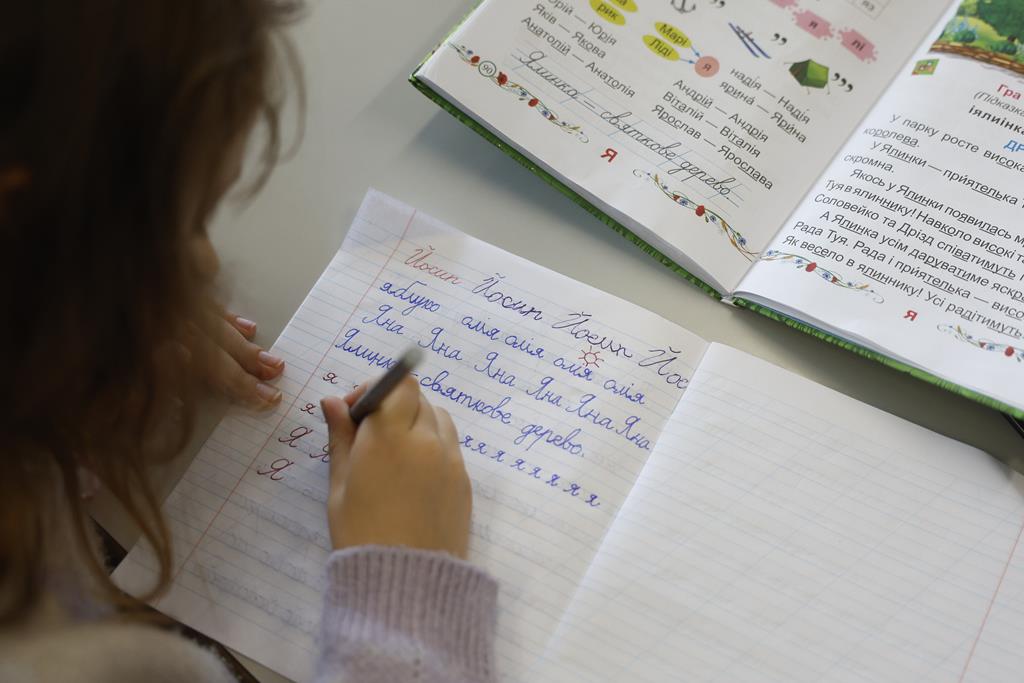 рик
Юрій — Юрія
Яків — Якова
Анатолій — Анатолія
Марі
Ліді
я
я
лі
надія — Надія
ярина — Ярина
Андрій — Андрія
Віталій — Віталія
Ярослав — Ярослава
90
Ялинка – святкове дерево.
Я
Гра
(Підказка
У парку росте висока
королева.
У Ялинки — приятелька
скромна.
Якось у Ялинки появилась
Туя в ялиннику! Навколо високі
Соловейко та Дрізд співатимуть
А Ялинка усім даруватиме
Рада Туя. Рада і приятелька —
Як весело в ялиннику! Усі радітимуть
Я
Йосип Йосип Йосип Йос
яблуко олія олія олія олія
Яна Яна Яна Яна Яна Яна
Ялинка – святкове дерево.
я я я я я я я я
я
Я Я
Я